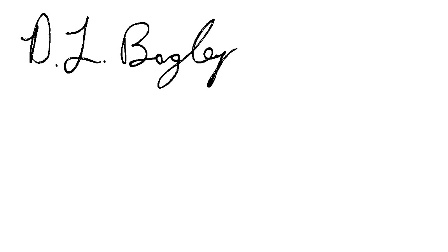 D. L. Bagley